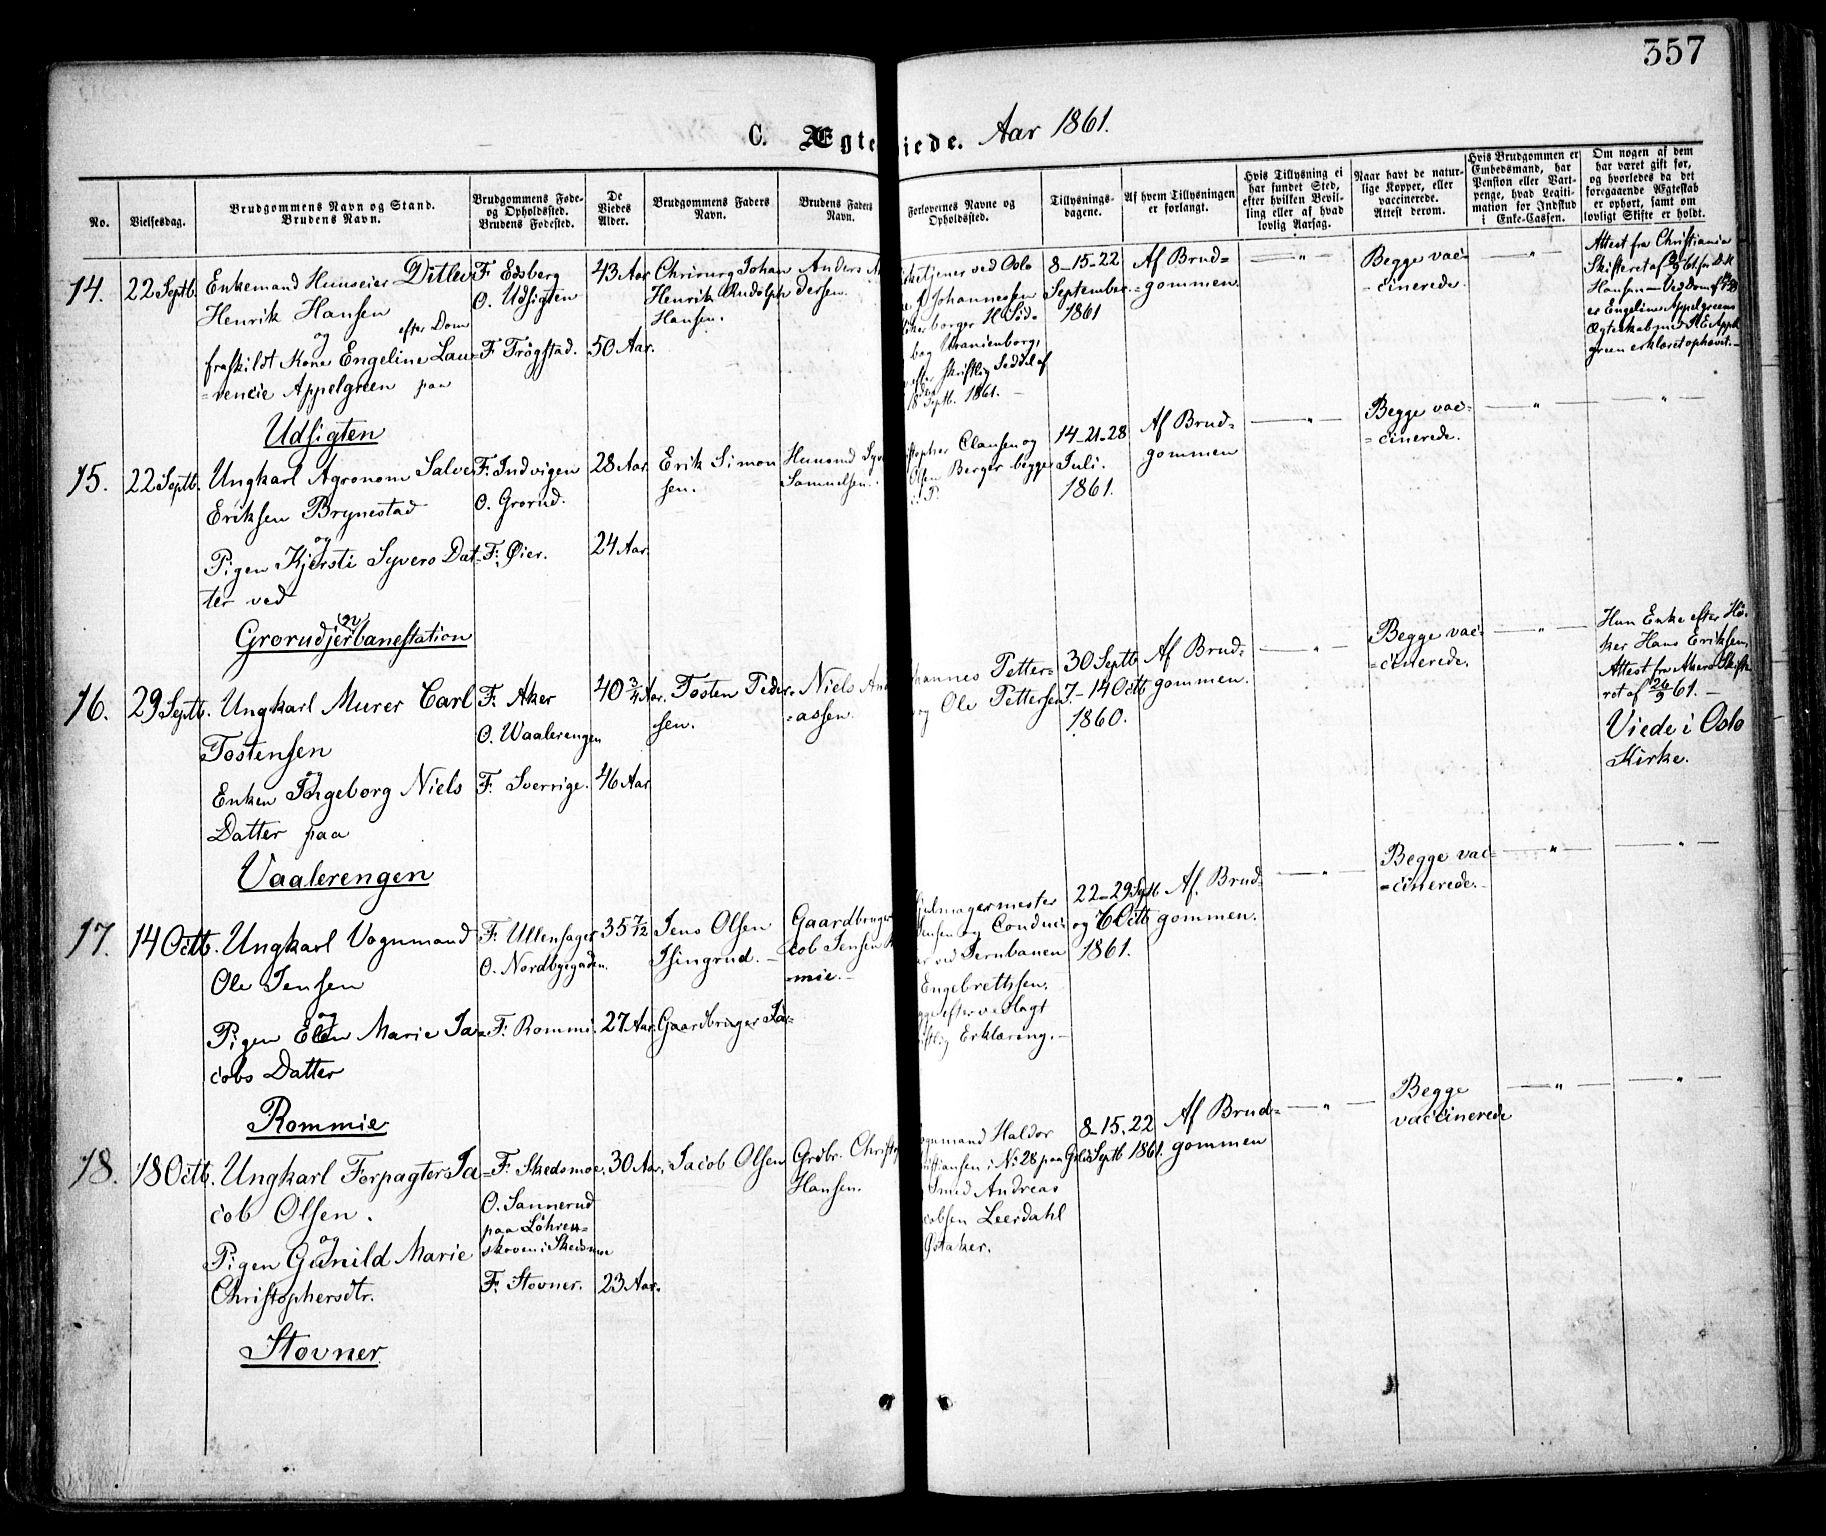 357
C. Ægte iede. Aar 1861.
No.
Vielsesdag.
Brudgommens Navn og Stand.
Brudens Navn.
Brudgommens Føde-
og Opholdssted.
Brudens Fødested.
De
Viedes
Alder.
Brudgommens Faders
Navn.
Brudens Faders
Navn.
Forlovernes Navne og
Opholdssted.
Tillysnings-
dagene.
Af hvem Tillysningen
er forlangt.
Hvis Tillysning ei
har fundet Sted,
efter hvilken Bevil-
ling eller af hvad
lovlig Aarsag.
Naar havt de natur-
lige Kopper, eller
vaccinerede.
Attest derom.
Hvis Brudgommen er
Embedsmand, har
Pension eller Vart-
penge, hvad Legiti-
mation for Indskud
i Enke-Cassen.
Om nogen af dem
har været gift før,
og hvorledes da det
foregaaende Ægteskab
er ophørt, samt om
lovligt Skifte er holdt.
14.
22 Septb.
Enkemand Huuseier Ditlev
Henrik Hansen
og efter Dom
fraskildt Kone Engeline Lau-
=rencie Appelgreen paa
Udsigten
F. Edsberg
O. Udsigten
F. Trøgstad.
43 Aar
50 Aar.
Chirurg Johan
Henrik Rudolph
Hansen.
Anders An
dersen.
ketjener ved Oslo
Johannessen
borger H. Sid-
bog Uranienborg,
efter skriftlig Seddel af
18 Septb. 1861.
8-15-22
September
1861
Af Brud=
=gommen.
— " —
Begge vac-
=cinerede.
— " —
Attest fra Christiania
Skifteret af 61 for D. H.
Hansen — Ved Dom af
er Engeline Appelgreens
Ægteskab med Appel
green erklæret ophævet.—
15.
22 Septb.
Ungkarl Agronom Salve
Eriksen Brynestad
og
Pigen Kjersti Syvers Dat-
ter ved
Grorudjernbanestation
F. Indvigen
O. Grorud.
F. Øier.
28 Aar.
24 Aar.
Erik Simon
sen.
Huusmd Syv
Samuelsen.
istopher Clausen og
Olsen Berger begge
i P.
14-21-28
Juli.
1861.
Af Brud=
gommen
— " —
Begge vac-
=cinerede.
— " —
— " —
16.
29 Septb.
Ungkarl Murer Carl
Tostensen
og
Enken Ingeborg Niels
Datter paa
Vaalerengen
F. Aker
O. Waalerengen
F. Sverrige.
40 3/4 Aar.
46 Aar
Tosten Peder-
sen.
Niels And
=assen.
hannes Petter=
og Ole Pettersen
30 Septb
7-14 Octb
1860.
Af Brud=
gommen.
— " —
Begge vac-
=cinerede.
— " —
Hun Enke efter Hø-
ker Hans Eriksen,
Attest fra Akers Skifte
ret af 26/9 61. —
Viede i Oslo
Kirke.
17.
14 Octb.
Ungkarl Vognmand
Ole Jensen
og
Pigen Elen Marie Ja=
cobs Datter
Rommie
F. Ullensager
O. Nordbygaden.
F. Rommi.
35 7/12
27 Aar.
Jens Olsen
Isingrud. —
Gaardbruger Ja=
Gaardbruger
cob Jensen R
=mie. —
julmagermester
Jensen og Conduc-
ør ved Jernbanen
Engebrettsen,
gge efter vedlagt
iftlig Erklæring. —
22-29 Sptb.
og 6 Octb
1861.
Af Brud=
gommen.
— " —
Begge vac-
=cinerede. —
— " —
— " —
18.
18 Octb.
Ungkarl Forpagter Ja=
cob Olsen.
og
Pigen Gunild Marie
Christophersdtr.
Stovner.
F. Skedsmoe.
O. Sannerud
paa Løhren-
skoven i Skedsmoe
F. Stovner.
30 Aar.
23 Aar.
Jacob Olsen
Grdbr. Christop
Hansen.
ognmand Haldor
istiansen i No 28 paa
Smed Andreas
cobsen Leerdahl
Østaker.
8-15-22
Septb 1861.
Af Brud=
gommen
— " —
Begge
vaccinerede
— " —
— " —